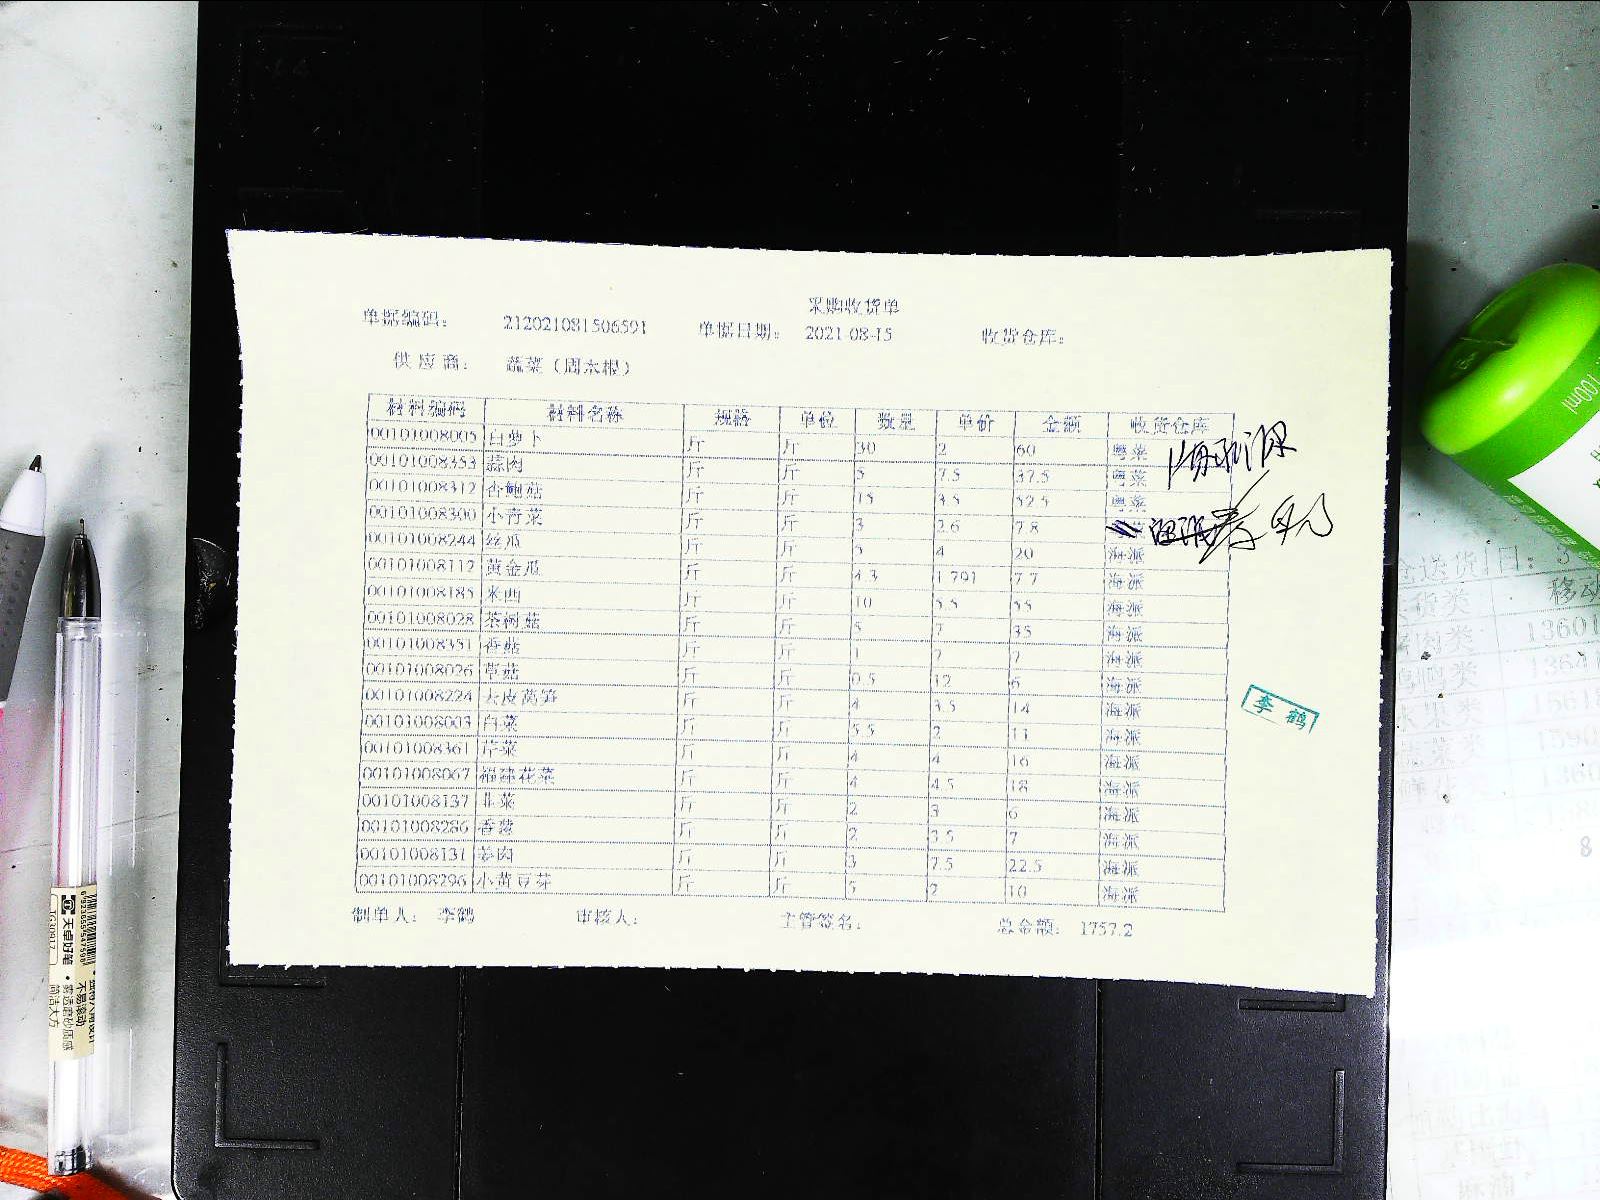 采购收货单
单据编码： 212021081506591 单据日期： 2021-08-15 收货仓库：
供应商： 蔬菜（周木根）
材料编码 材料名称 规格 单位 数量 单价 金额 收货仓库
00101008005 白萝卜 斤 斤 30 2 60 粤菜
00101008353 蒜肉 斤 斤 5 7.5 37.5 粤菜
00101008312 杏鲍菇 斤 斤 15 3.5 52.5 粤菜
00101008300 小青菜 斤 斤 3 2.6 7.8
00101008244 丝瓜 斤 斤 5 4 20 海派
00101008112 黄金瓜 斤 斤 4.3 1.791 7.7 海派
00101008185 米西 斤 斤 10 5.5 55 海派
00101008028 茶树菇 斤 斤 5 7 35 海派
00101008351 香菇 斤 斤 1 7 7 海派
00101008026 草菇 斤 斤 0.5 12 6 海派
00101008224 去皮莴笋 斤 斤 4 3.5 14 海派
00101008003 白菜 斤 斤 5.5 2 11 海派
00101008361 芹菜 斤 斤 4 4 16 海派
00101008067 福建花菜 斤 斤 4 4.5 18 海派
00101008137 韭菜 斤 斤 2 3 6 海派
00101008286 香葱 斤 斤 2 3.5 7 海派
00101008131 姜肉 斤 斤 3 7.5 22.5 海派
00101008296 小黄豆芽 斤 斤 5 2 10 海派
制单人： 李鹤 审核人： 主管签名： 总金额： 1757.2
李鹤
天卓好笔
不易滚动
雾透磨砂质感
简洁大方
TG30917
6923185547598
100ml
送货日：3
货类 移动
肉类 13601
水果类
蔬菜类
8